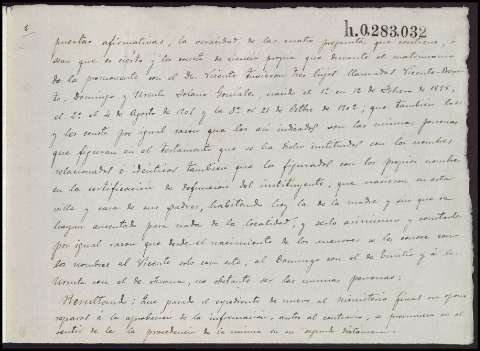 h.0.283.032
puestas afirmativas, la veracidad de las cuatro preguntas que contiene, o
sean que es cierto y les consta de ciencia propia que durante el matrimonio
de la promovente con el de Vicente tuvieron tres hijos llamados Vicente
Domingo y Ursula Solano Gonzalez, nacido el 1º en 12 de Febrero de
el 2º el 4 de Agosto de 1901 y la 3ª el 21 de 8bre de 1902; que tambien les
y les consta por igual razon que los así indicados son las mismas personas
que figuran en el testamento que se ha instituidos con los nombres
relacionados é idénticos tambien que los figurados con los propios nombres
en la certificacion de defuncion del instituyente, que nacieron en esta
villa y casa de sus padres, habitando hoy la de la madre y sin que se
hayan ausentado para nada de la localidad, y sexto asimismo y constado
por igual razon que desde el nacimiento de los menores se les conoce con
los nombres al Vicente solo con este, al Domingo con el de Emilio y á la
Ursula con el de Juana, no obstante ser las mismas personas;
Resultando: Que pasado el expediente de nuevo al ministerio fiscal
reparo á la aprobacion de la informacion, antes al contrario, se pronuncia en el
sentido de la procedencia de la misma en su segundo dictamen.